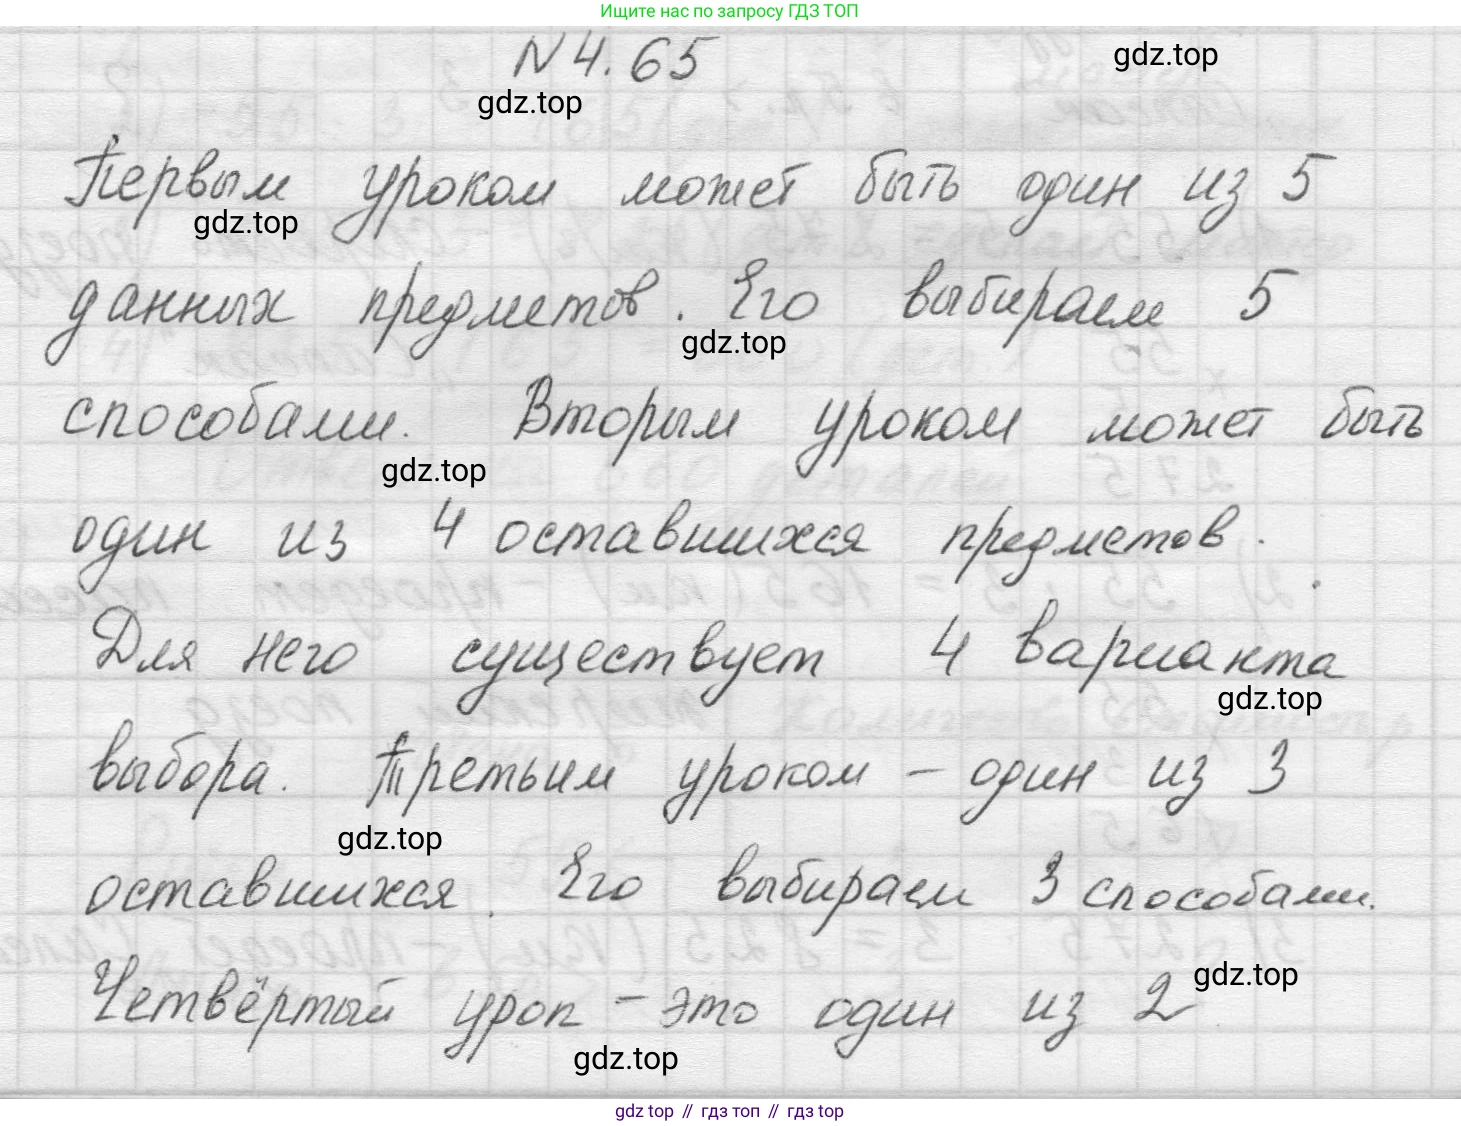 Ищите нас по запросу ГДЗ ТОП
N 4.65
gdz.top
gdz.top
Первым уроком может быть один из 5
gdz.top
данных предметов. Его выбираем 5
gdz.top
способами. Вторым уроком может быть
gdz.top
один из 4 оставшихся предметов.
Для него существует 4 варианта
gdz.top
выбора. Третьим уроком – один из 3
gdz.top
оставшихся. Его выбираем 3 способами.
gdz.top
Четвёртый урок – это один из 2
gdz.top
gdz top // гдз топ // гдз top